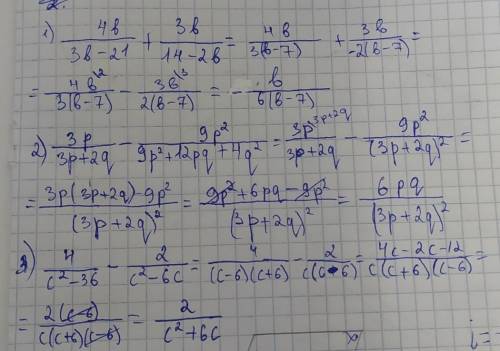 2.
1) 4в/(3в-21) + 3в/(14-2в) = 4в/(3(в-7)) + 3в/(-2(в-7)) =
= 4в^{\2}/(3(в-7)) - 3в^{\3}/(2(в-7)) = - в/(6(в-7))
2) 3p/(3p+2q) - 9p²/(9p²+12pq+4q²) = 3p^{\3p+2q}/(3p+2q) - 9p²/(3p+2q)² =
= (3p(3p+2q)-9p²)/(3p+2q)² = (9p²+6pq-9p²)/(3p+2q)² = 6pq/(3p+2q)²
3) 4/(c²-36) - 2/(c²-6c) = 4/((c-6)(c+6)) - 2/(c(c-6)) = (4c-2c-12)/(c(c+6)(c-6)) =
= 2(c-6)/(c(c+6)(c-6)) = 2/(c²+6c)